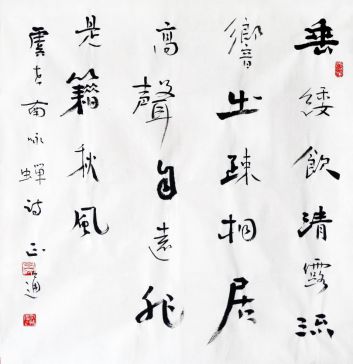 垂緌飲清露流
響出疎桐居
高聲自遠非
是籍秋風
虞世南咏蟬诗 正通